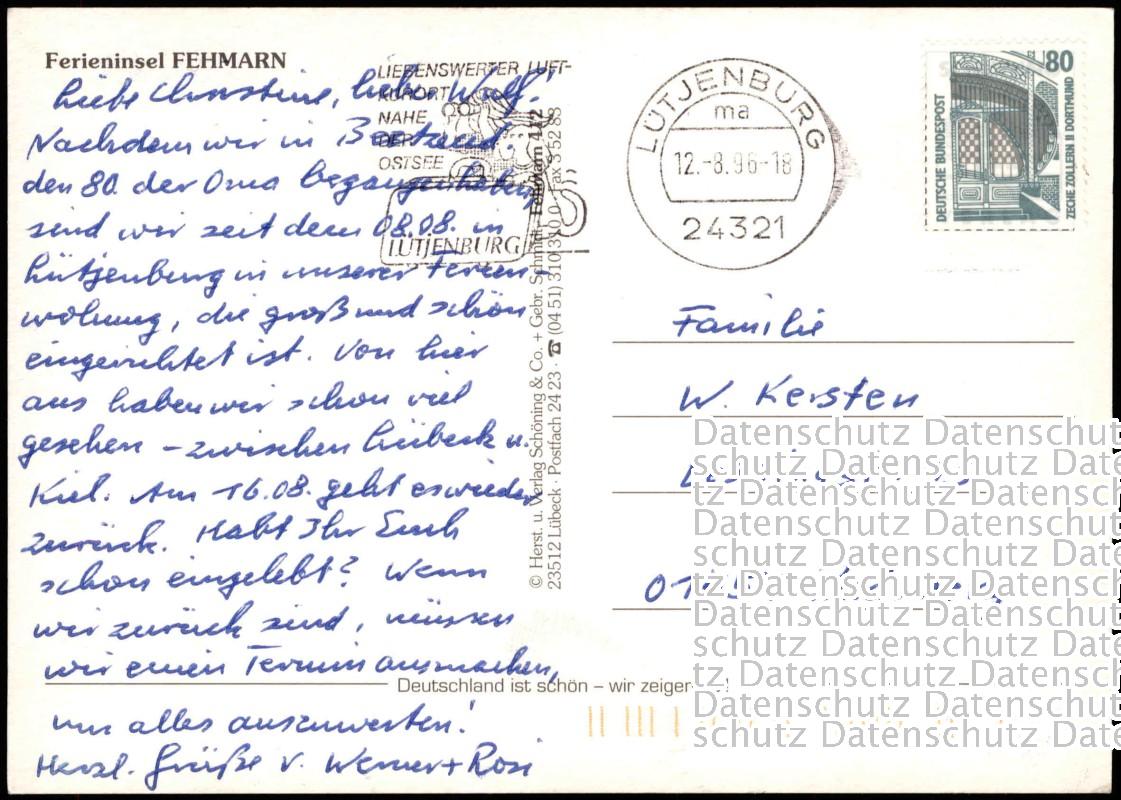 Ferieninsel FEHMARN
Liebe Christine, lieber Wulf!
Nachdem wir in
den 80. der Oma begangen haben,
sind wir seit dem 08.08. in
Lütjenburg in unserer Ferien-
wohnung, die groß und schön
eingerichtet ist. Von hier
aus haben wir schon viel
gesehen – zwischen Lübeck u.
Kiel. Am 16.08. geht es wieder
zurück. Habt Ihr Euch
schon eingelebt? Wenn
wir zurück sind, müssen
wir einen Termin ausmachen,
um alles auszuwerten!
Herzl. Grüße v. Werner + Rosi
Deutschland ist schön – wir zeigen
LIEBENSWERTER LUFT-
KURORT
NAHE
DER
OSTSEE
LÜTJENBURG
© Herst. u. Verlag Schöning & Co. + Gebr. Schmidt · Fehmarn 412
23512 Lübeck · Postfach 24 23 · ☎ (04 51) 310 310 0 · Fax 3 52 88
LÜTJENBURG
ma
12.-8.96-18
24321
80
DEUTSCHE BUNDESPOST
ZECHE ZOLLERN II DORTMUND
Familie
W. Kersten
Datenschutz Datenschut
schutz Datenschutz Date
tz Datenschutz Datensch
Datenschutz Datenschut
schutz Datenschutz Date
tz Datenschutz Datensch
schutz Datenschutz Date
tz Datenschutz Datensch
Datenschutz Datenschut
schutz Datenschutz Date